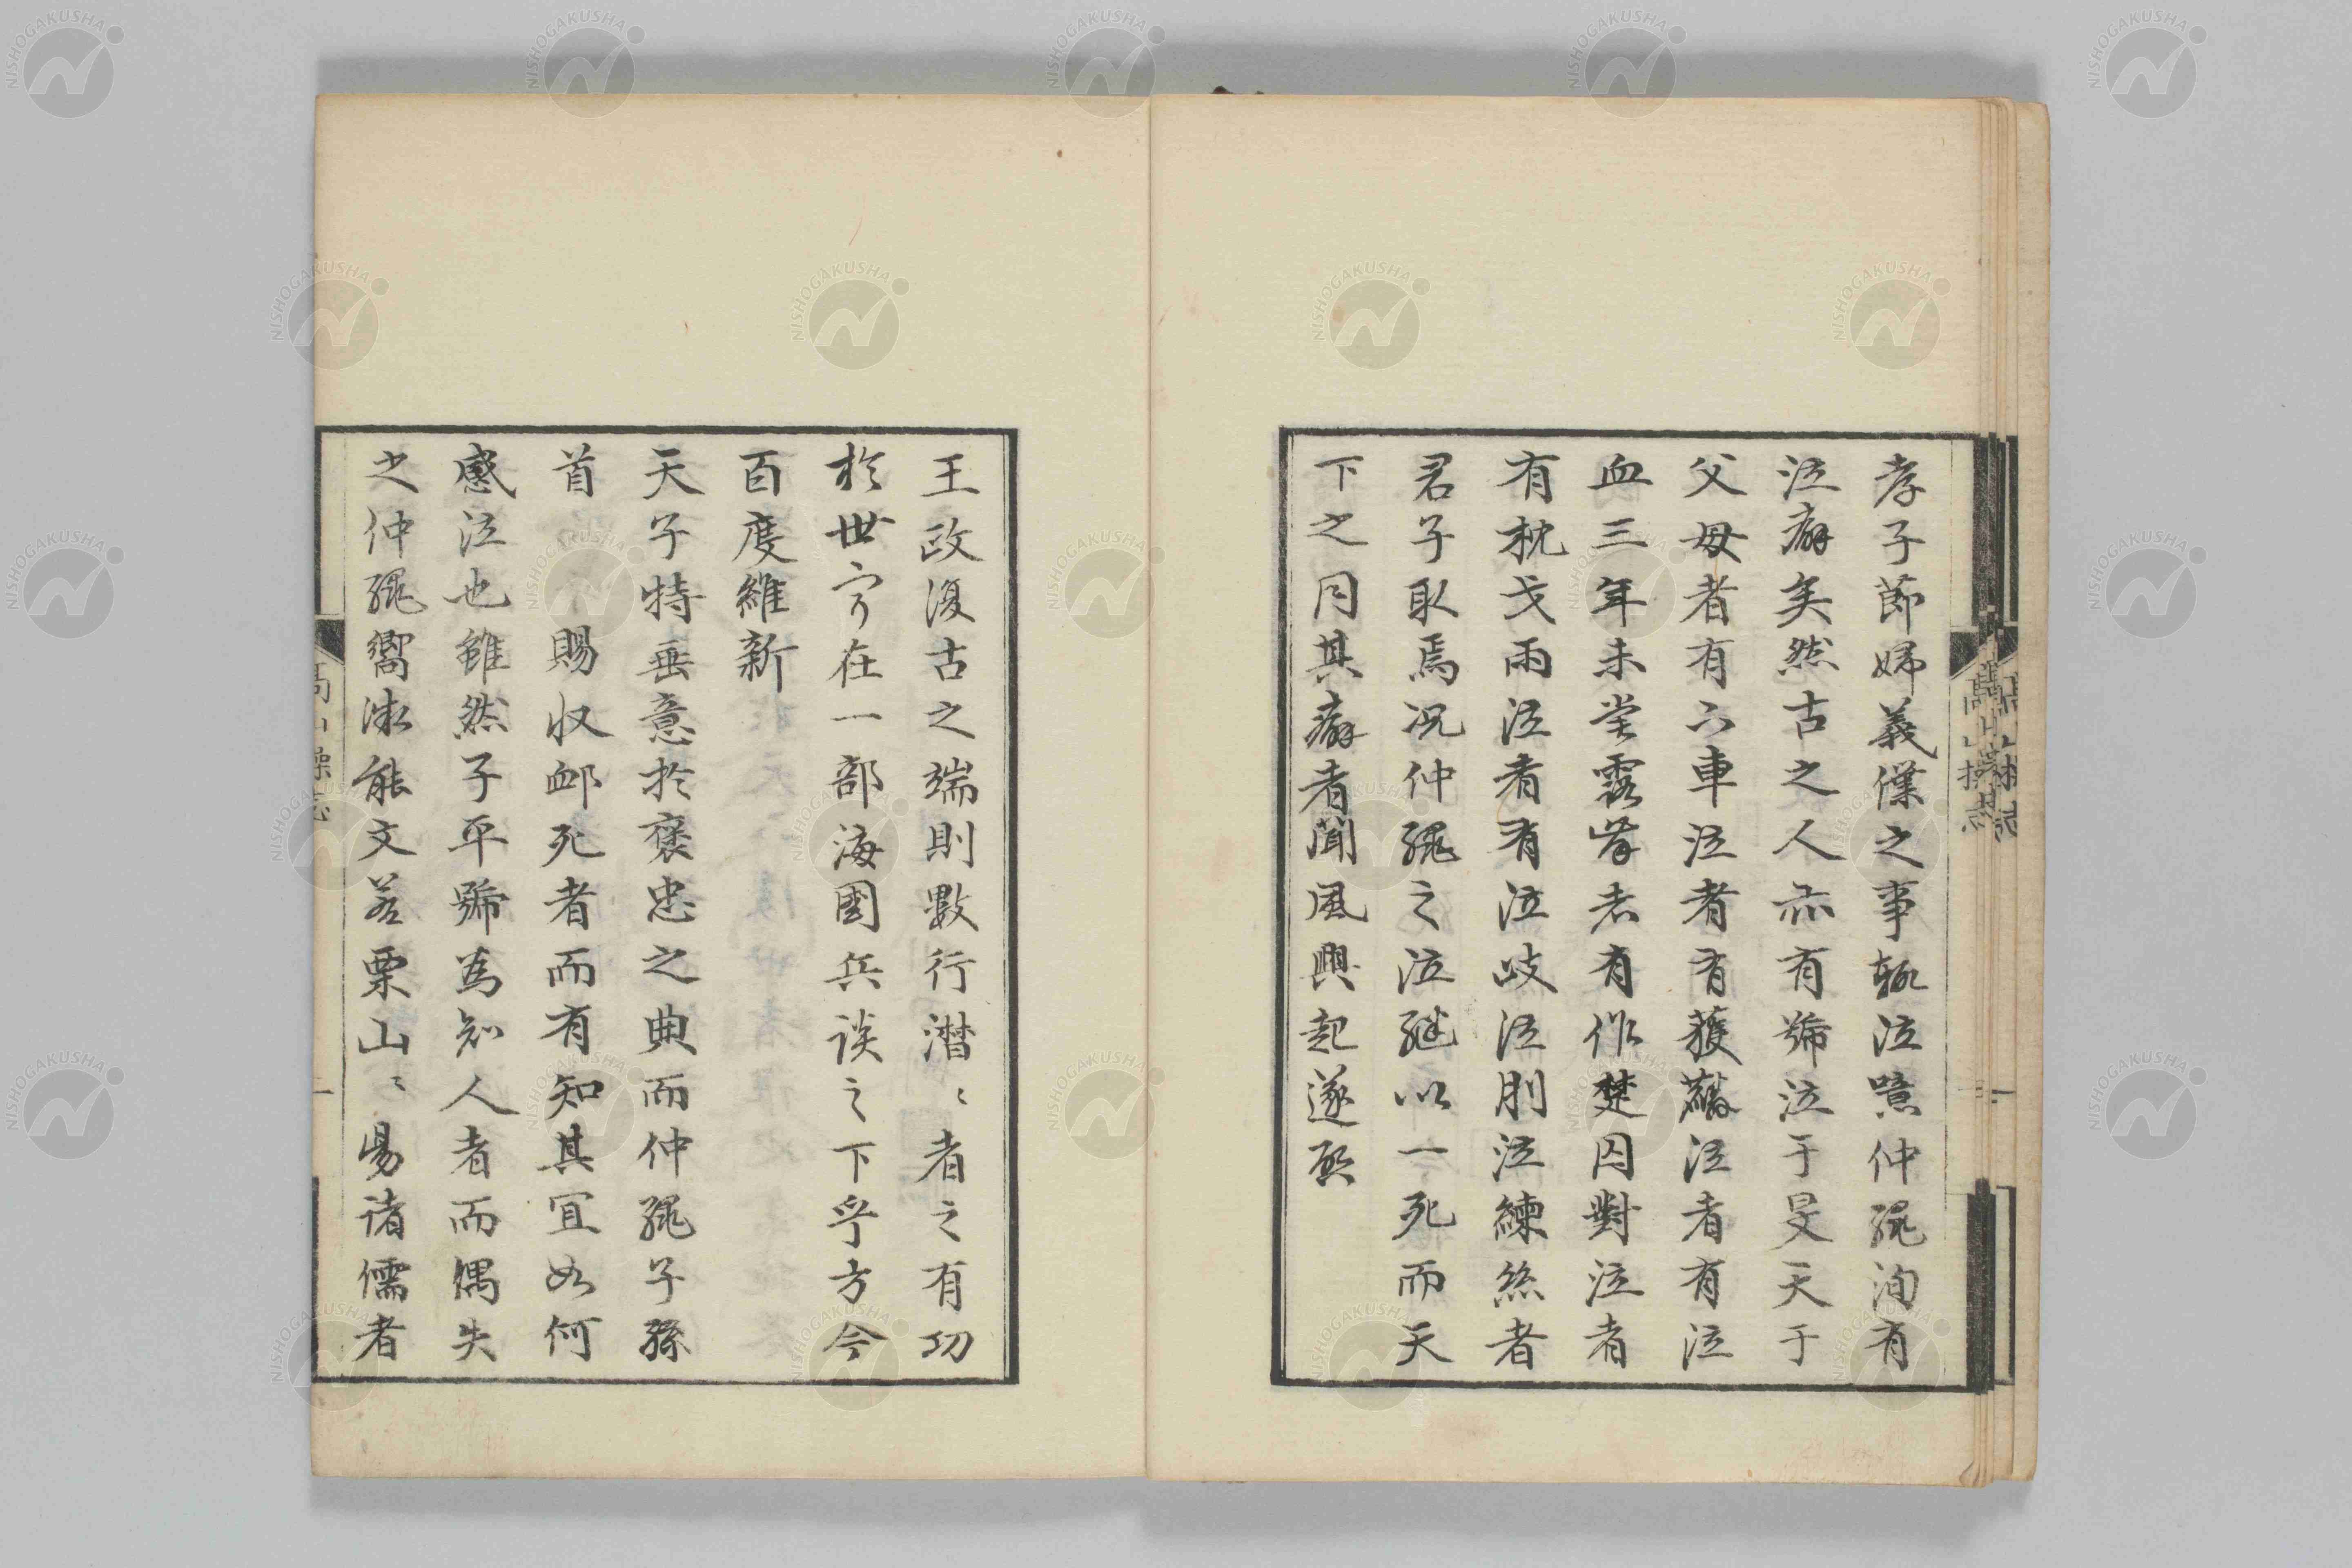 孝子節婦義僕之事輒泣噫仲繩洵有
泣癖矣然古之人亦有號泣于旻天于
父母者有下車泣者有獲麟泣者有泣
血三年未嘗露齒者有作楚囚對泣者
有枕戈雨泣者有泣岐泣刖泣練絲者
君子取焉况仲繩之泣継以一死而天
下之同其癖者聞風興起遂啓
王政復古之端則數行潜〻者之有功
於世寧在一部海國兵談之下乎方今
百度維新
天子特垂意於褒忠之典而仲繩子孫
首 賜収卹死者而有知其宜如何
感泣也雖然子平號為知人者而偶失
之仲繩嚮微能文若栗山〻易諸儒者
高山操志
NISHOGAKUSHA